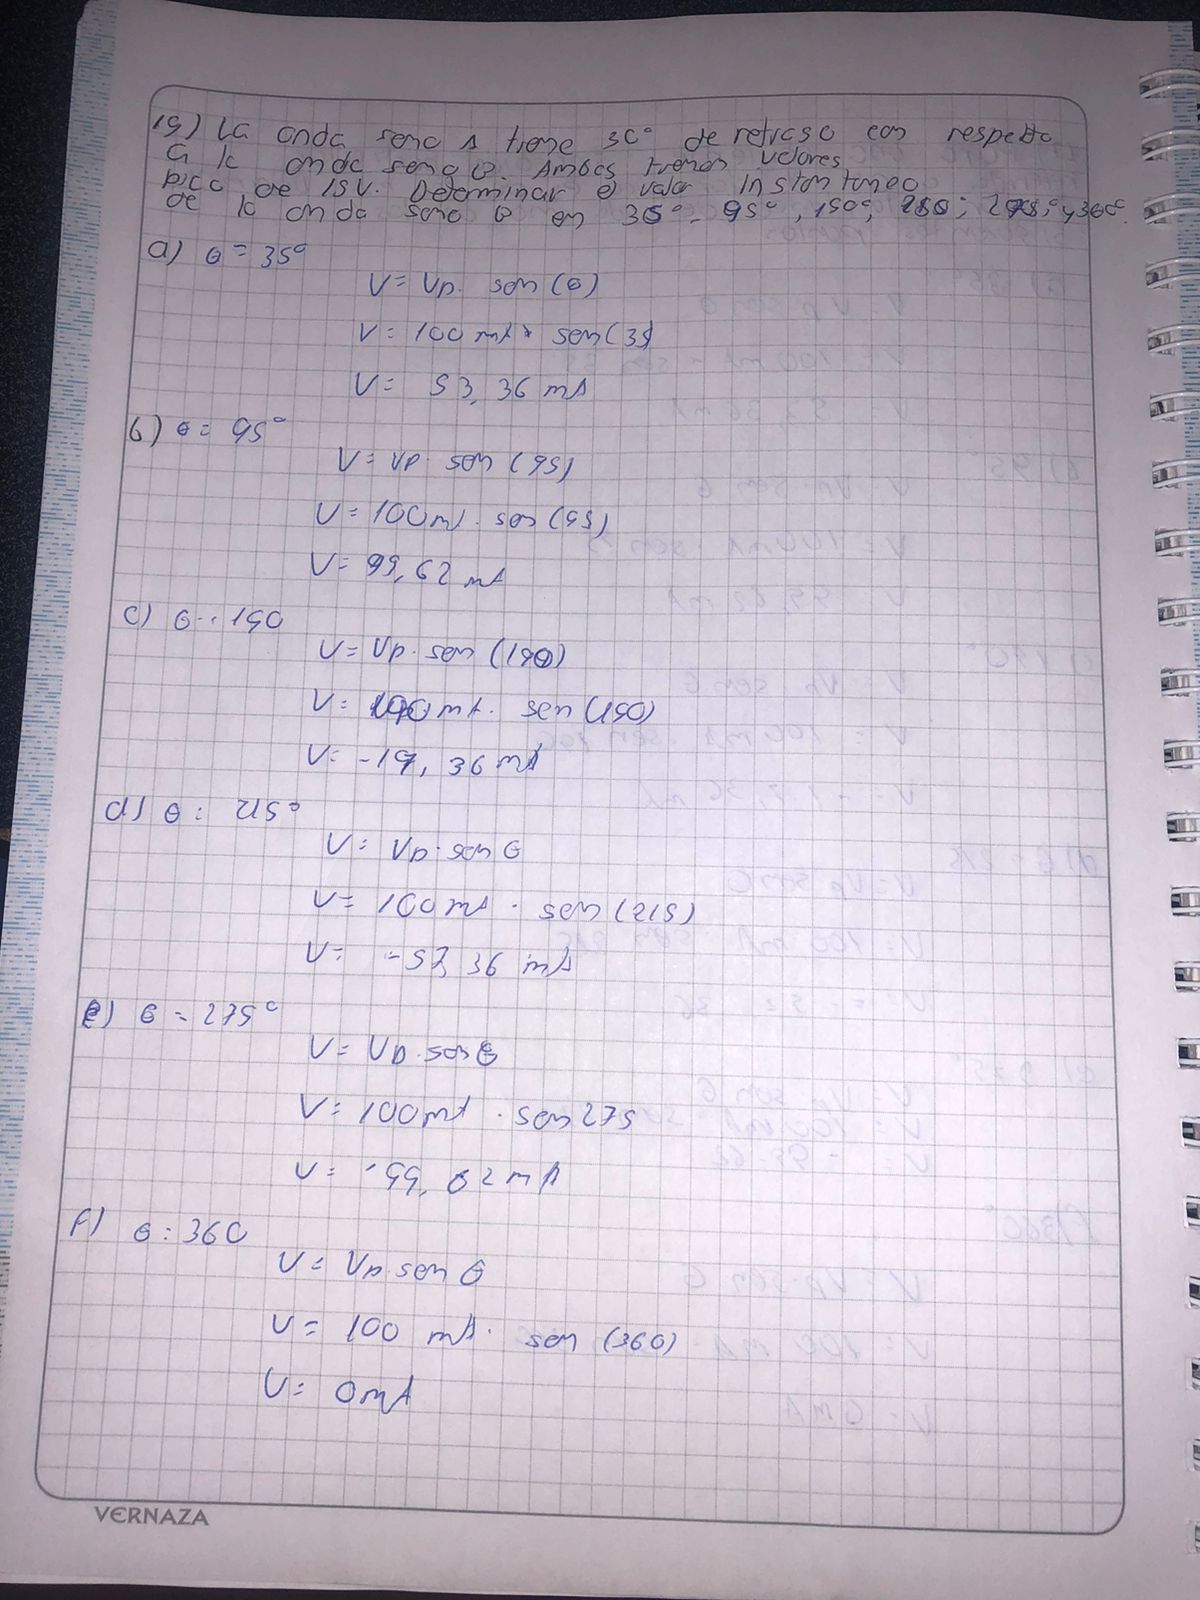 15) La onda seno A tiene 30° de retraso con respecto
a la onda seno B. Ambos tienen valores
pico de 15V. Determinar el valor instantaneo
de la onda seno B en 30°, 45°,
a) θ = 35°
V = Vp. sen (θ)
V = 100 mA * sen (35)
V = 57,36 mA
b) θ = 95°
V = Vp. sen (95)
V = 100 mA. sen (95)
V = 99,62 mA
c) θ = 190
V = Vp. sen (190)
V = 100 mA. sen (190)
V = -17,36 mA
d) θ = 215°
V = Vp. sen θ
V = 100 mA. sen (215)
V = -57,36 mA
e) θ = 275°
V = Vp. sen θ
V = 100 mA. sen 275
V = -99,62 mA
f) θ = 360
V = Vp. sen θ
V = 100 mA. sen (360)
V = 0 mA
VERNAZA